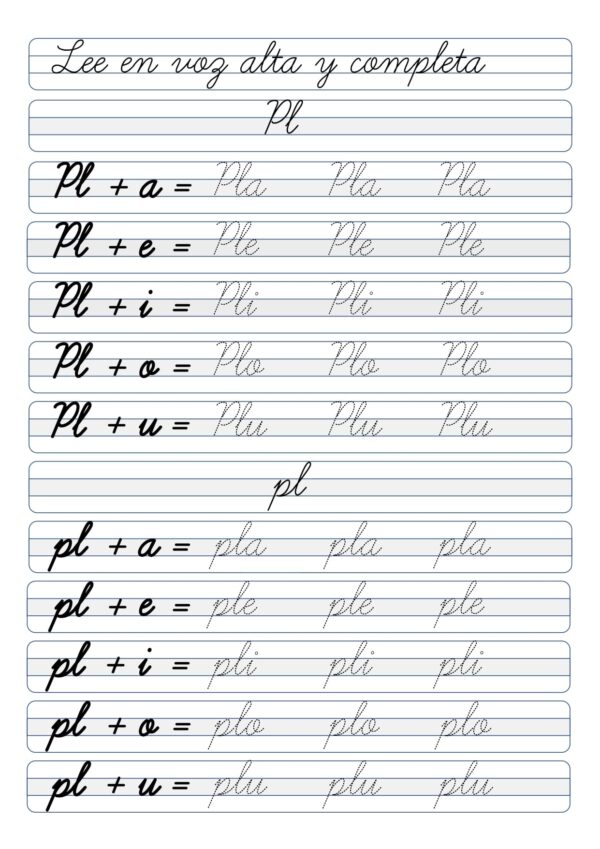 Lee en voz alta y completa
Pl
Pl + a = Pla Pla Pla
Pl + e = Ple Ple Ple
Pl + i = Pli Pli Pli
Pl + o = Plo Plo Plo
Pl + u = Plu Plu Plu
pl
pl + a = pla pla pla
pl + e = ple ple ple
pl + i = pli pli pli
pl + o = plo plo plo
pl + u = plu plu plu